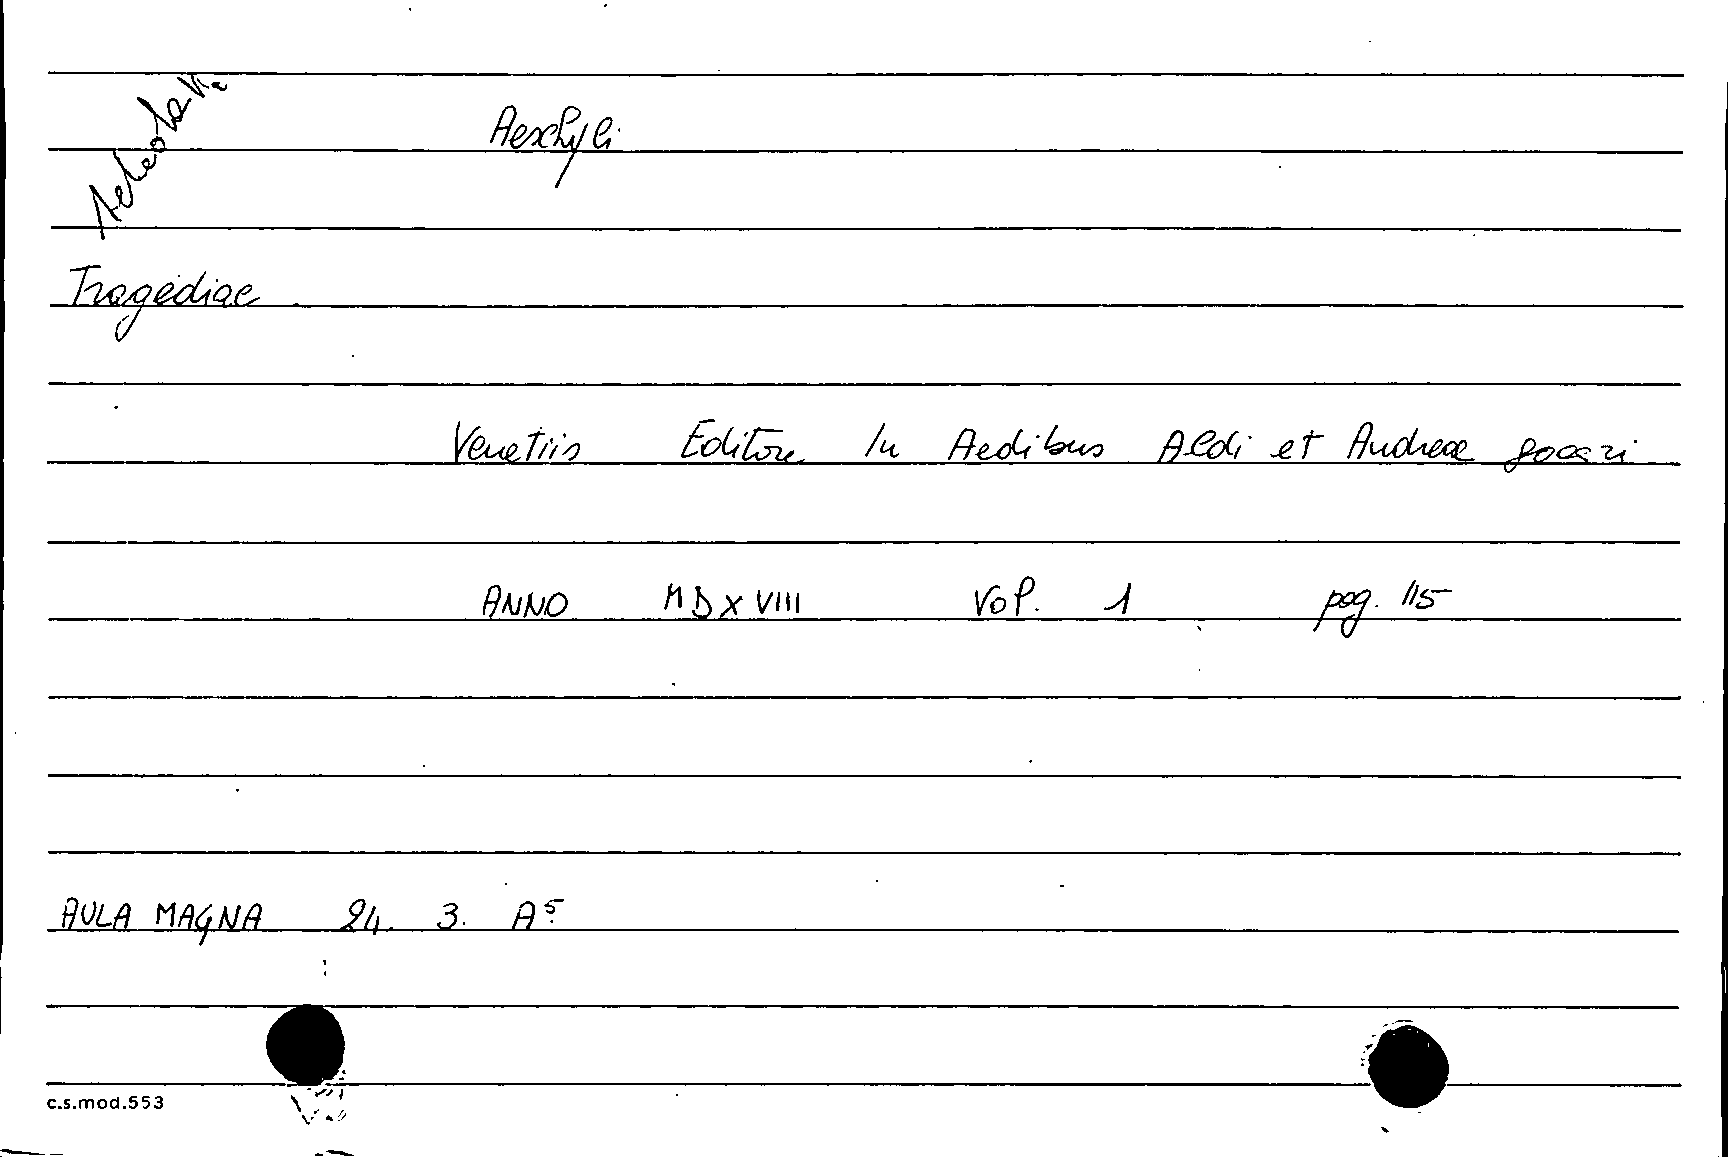 Aeschyli
Tragediae.
Venetiis Editore In Aedibus Aldi et Andreae soceri
ANNO MDXVIII Vol. 1 pag. 115
AULA MAGNA 24. 3. A⁵
c.s.mod.553